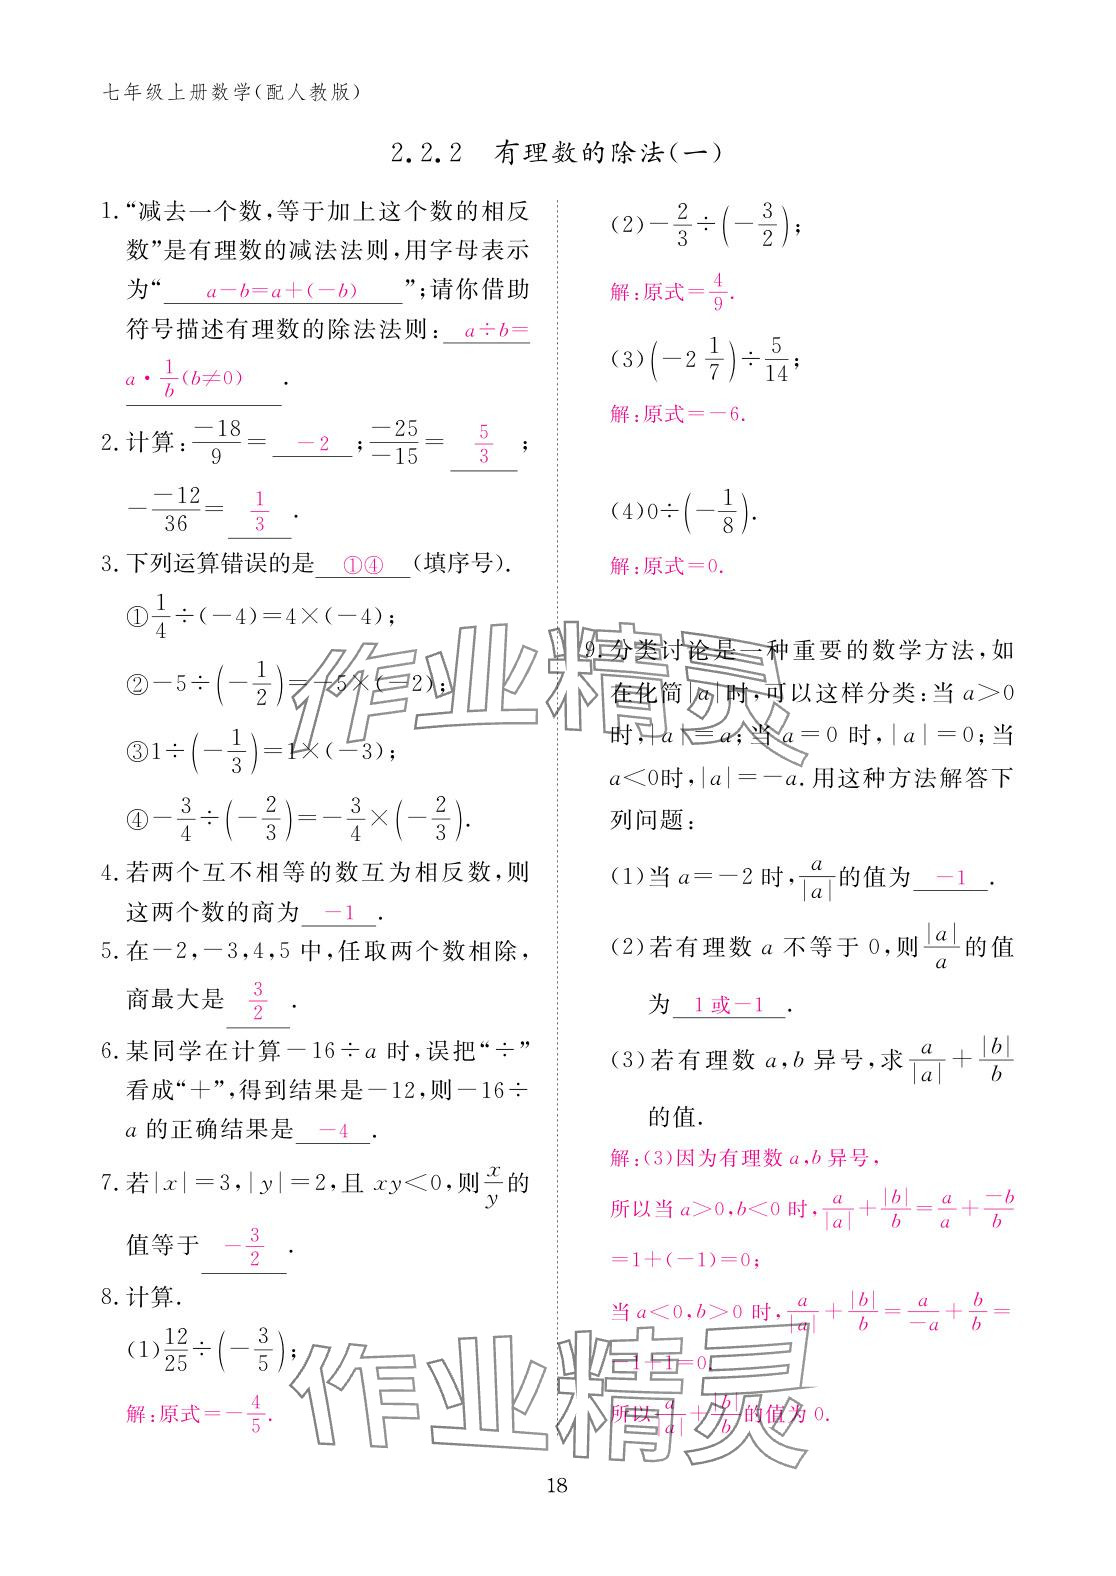 七年级上册数学(配人教版)
2.2.2 有理数的除法(一)
1.“减去一个数,等于加上这个数的相反
数”是有理数的减法法则,用字母表示
为“ a-b=a+(-b) ”;请你借助
符号描述有理数的除法法则: a÷b=
a·1/b(b≠0) .
2.计算:-18/9= -2 ;-25/-15= 5/3 ;
--12/36= 1/3 .
3.下列运算错误的是 ①④ (填序号).
①1/4÷(-4)=4×(-4);
②-5÷(-1/2)=-5×(-2);
③1÷(-1/3)=1×(-3);
④-3/4÷(-2/3)=-3/4×(-2/3).
4.若两个互不相等的数互为相反数,则
这两个数的商为 -1 .
5.在-2,-3,4,5中,任取两个数相除,
商最大是 3/2 .
6.某同学在计算-16÷a时,误把“÷”
看成“+”,得到结果是-12,则-16÷
a的正确结果是 -4 .
7.若|x|=3,|y|=2,且xy<0,则x/y的
值等于 -3/2 .
8.计算.
(1)12/25÷(-3/5);
解:原式=-4/5.
(2)-2/3÷(-3/2);
解:原式=4/9.
(3)(-2 1/7)÷5/14;
解:原式=-6.
(4)0÷(-1/8).
解:原式=0.
9.分类讨论是一种重要的数学方法,如
在化简|a|时,可以这样分类:当a>0
时,|a|=a;当a=0时,|a|=0;当
a<0时,|a|=-a.用这种方法解答下
列问题:
(1)当a=-2时,a/|a|的值为 -1 .
(2)若有理数a不等于0,则|a|/a的值
为 1或-1 .
(3)若有理数a,b异号,求a/|a|+|b|/b
的值.
解:(3)因为有理数a,b异号,
所以当a>0,b<0时,a/|a|+|b|/b=a/a+-b/b
=1+(-1)=0;
当a<0,b>0时,a/|a|+|b|/b=a/-a+b/b=
-1+1=0.
所以a/|a|+|b|/b的值为0.
作业精灵
作业精灵
18